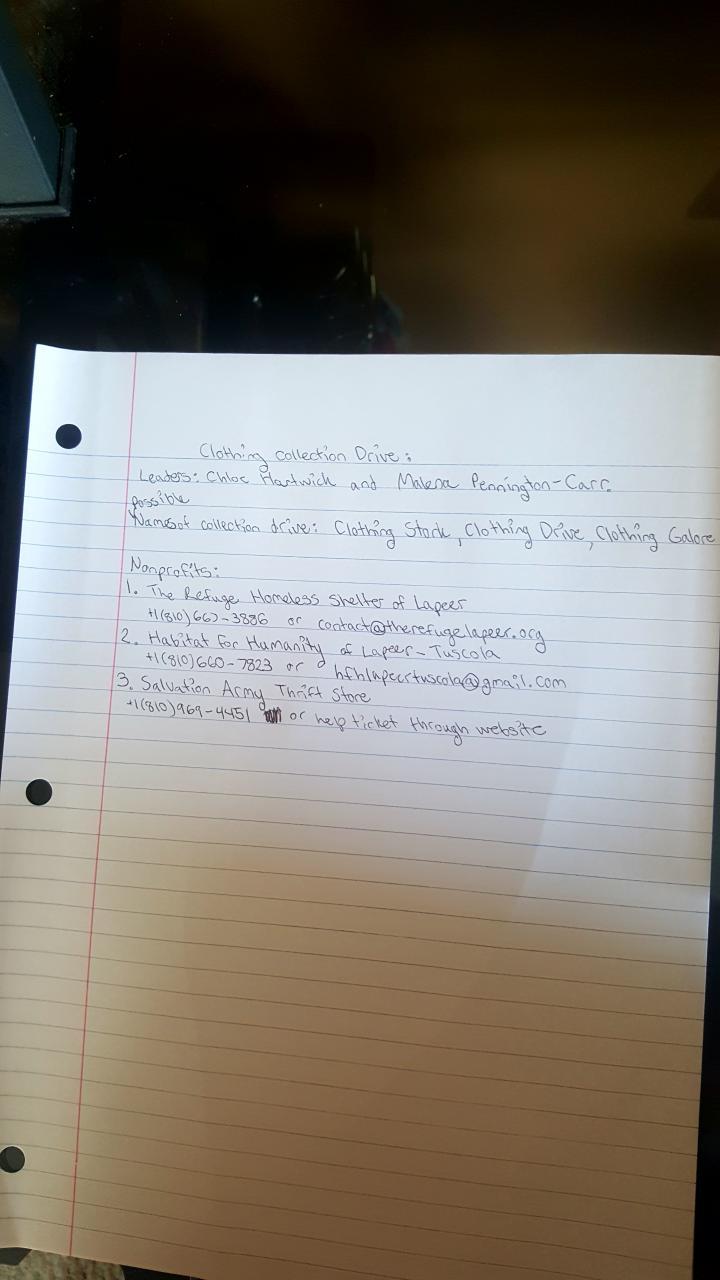 Clothing Collection Drive:
Leaders: Chloe Hartwich and Malena Pennington-Carr.
Possible
Names of collection drive: Clothing Stock, Clothing Drive, Clothing Galore
Nonprofits:
1. The Refuge Homeless Shelter of Lapeer
+1(810)667-3836 or contact@therefugelapeer.org
2. Habitat For Humanity of Lapeer-Tuscola
+1(810)660-7823 or hfhlapeertuscola@gmail.com
3. Salvation Army Thrift Store
+1(810)969-4451 or help ticket through website